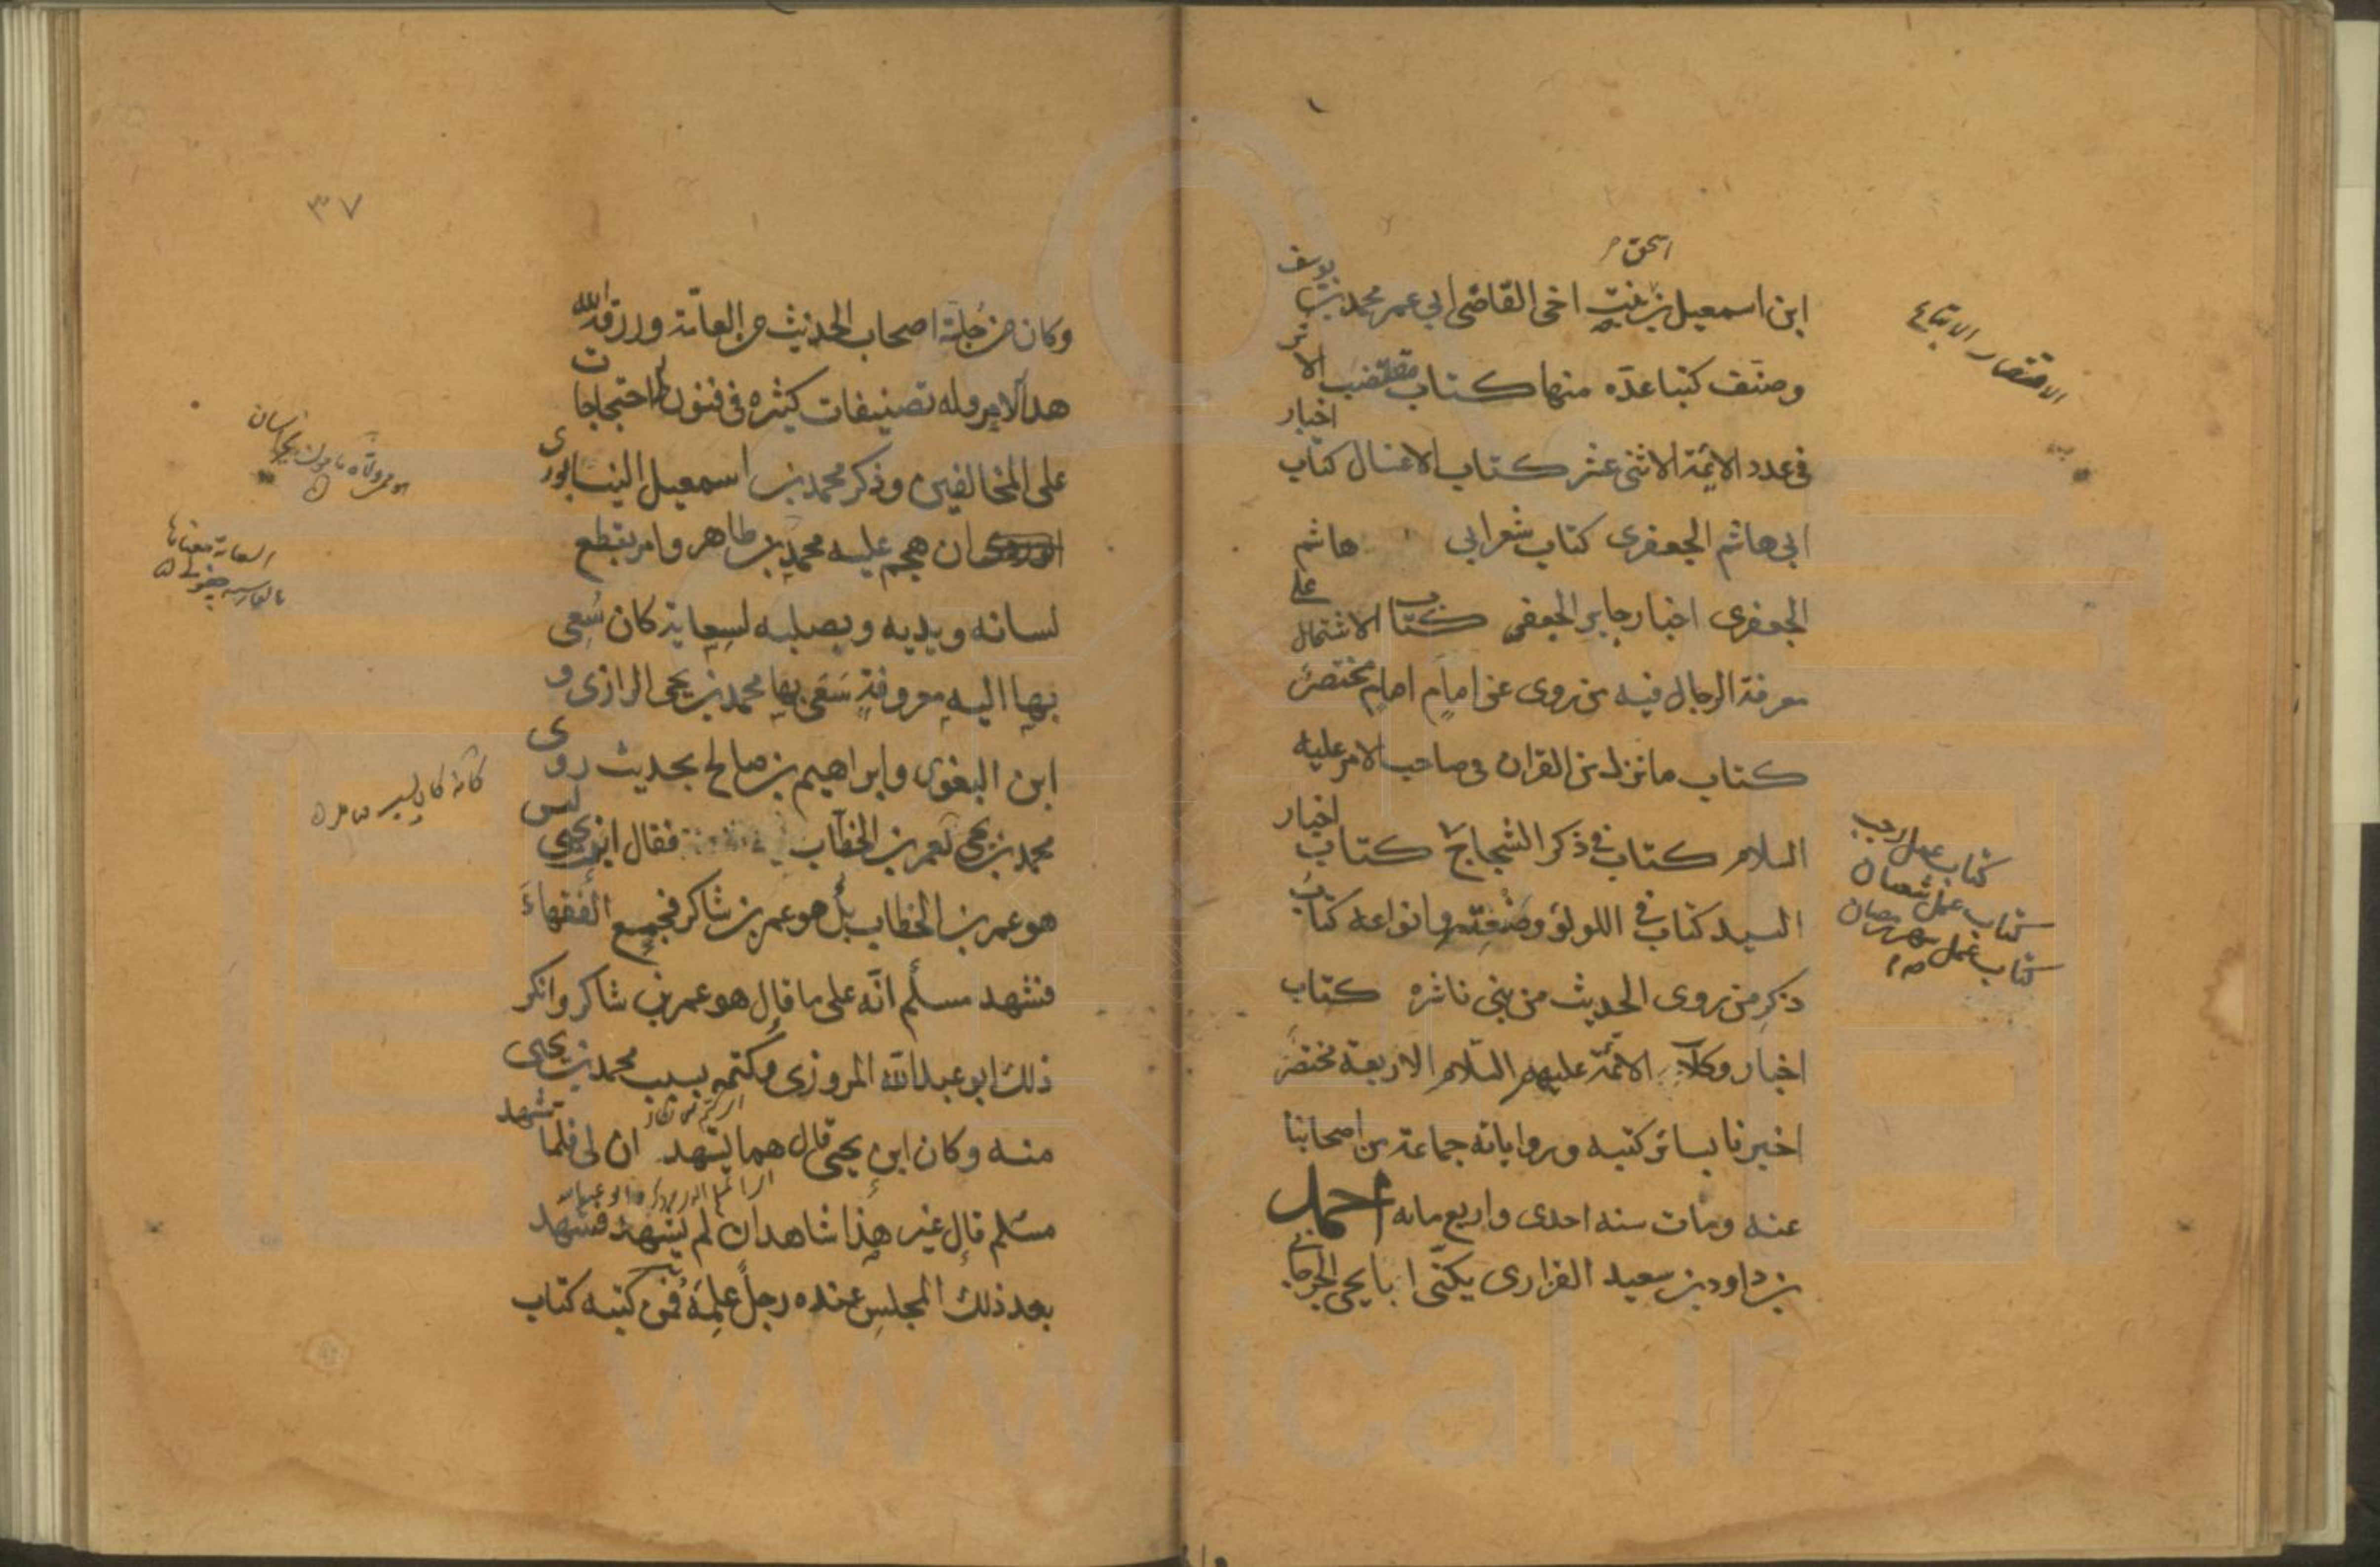 اسحق
ابن اسمعيل بن بنت اخى القاضى ابى عمر محمد بن يوسف
وصنف كتبا عدّه منها كتاب مقتضب الاثر
فى عدد الائمة الاثنى عشر كتاب الاغسال كتاب اخبار
ابى هاشم الجعفرى كتاب شعر ابى هاشم
الجعفرى اخبار جابر الجعفى كتاب الاشتمال على
معرفة الرجال فيه من روى عن امام امام مختصر
كتاب ما نزل من القران فى صاحب الامر عليه
السلام كتاب فى ذكر الشجاج كتاب اخبار
السيد كتاب فى اللولؤ وصنعته وانواعه كتاب
ذكر من روى الحديث من بنى ناشره كتاب
اخبار وكلاء الائمّة عليهم السّلام الاربعة مختصر
اخبرنا بسائر كتبه ورواياته جماعة من اصحابنا
عنه ومات سنه احدى واربع مائه احمد
بن داود بن سعيد الفزارى يكنّى ابا يحيى الجرجانى
كتاب عمل رجب
كتاب عمل شعبان
كتاب عمل شهر رمضان
٣٧
وكان من جُلّة اصحاب الحديث من العامّة ورزقه الله
هذا الامر وله تصنيفات كثيره فى فنون الاحتجاجات
على المخالفين وذكر محمد بن اسمعيل النيسابورى
ان هجم عليه محمد بن طاهر وامر بقطع
لسانه ويديه وبصلبه لسعاية كان سُعِى
بها اليه معروفة سَعَى بها محمد بن يحيى الرازى و
ابن البغوى وابراهيم بن صالح بحديث روى
محمد بن يحيى لعمر بن الخطاب فقال ابن يحيى ليس
هو عمر بن الخطاب بل هو عمر بن شاكر فجمع الفقهاءَ
فشهد مسلم انّه على ما قال هو عمر بن شاكر وانكر
ذلك ابو عبد الله المروزى وكتمه بسبب محمد بن يحيى
منه وكان ابن يحيى قال هما يشهد ان لى فلما شهد
مسلم قال غير هذا شاهد ان لم يشهد فشهد
بعد ذلك المجلس عنده رجل علمه فمن كتبه كتاب